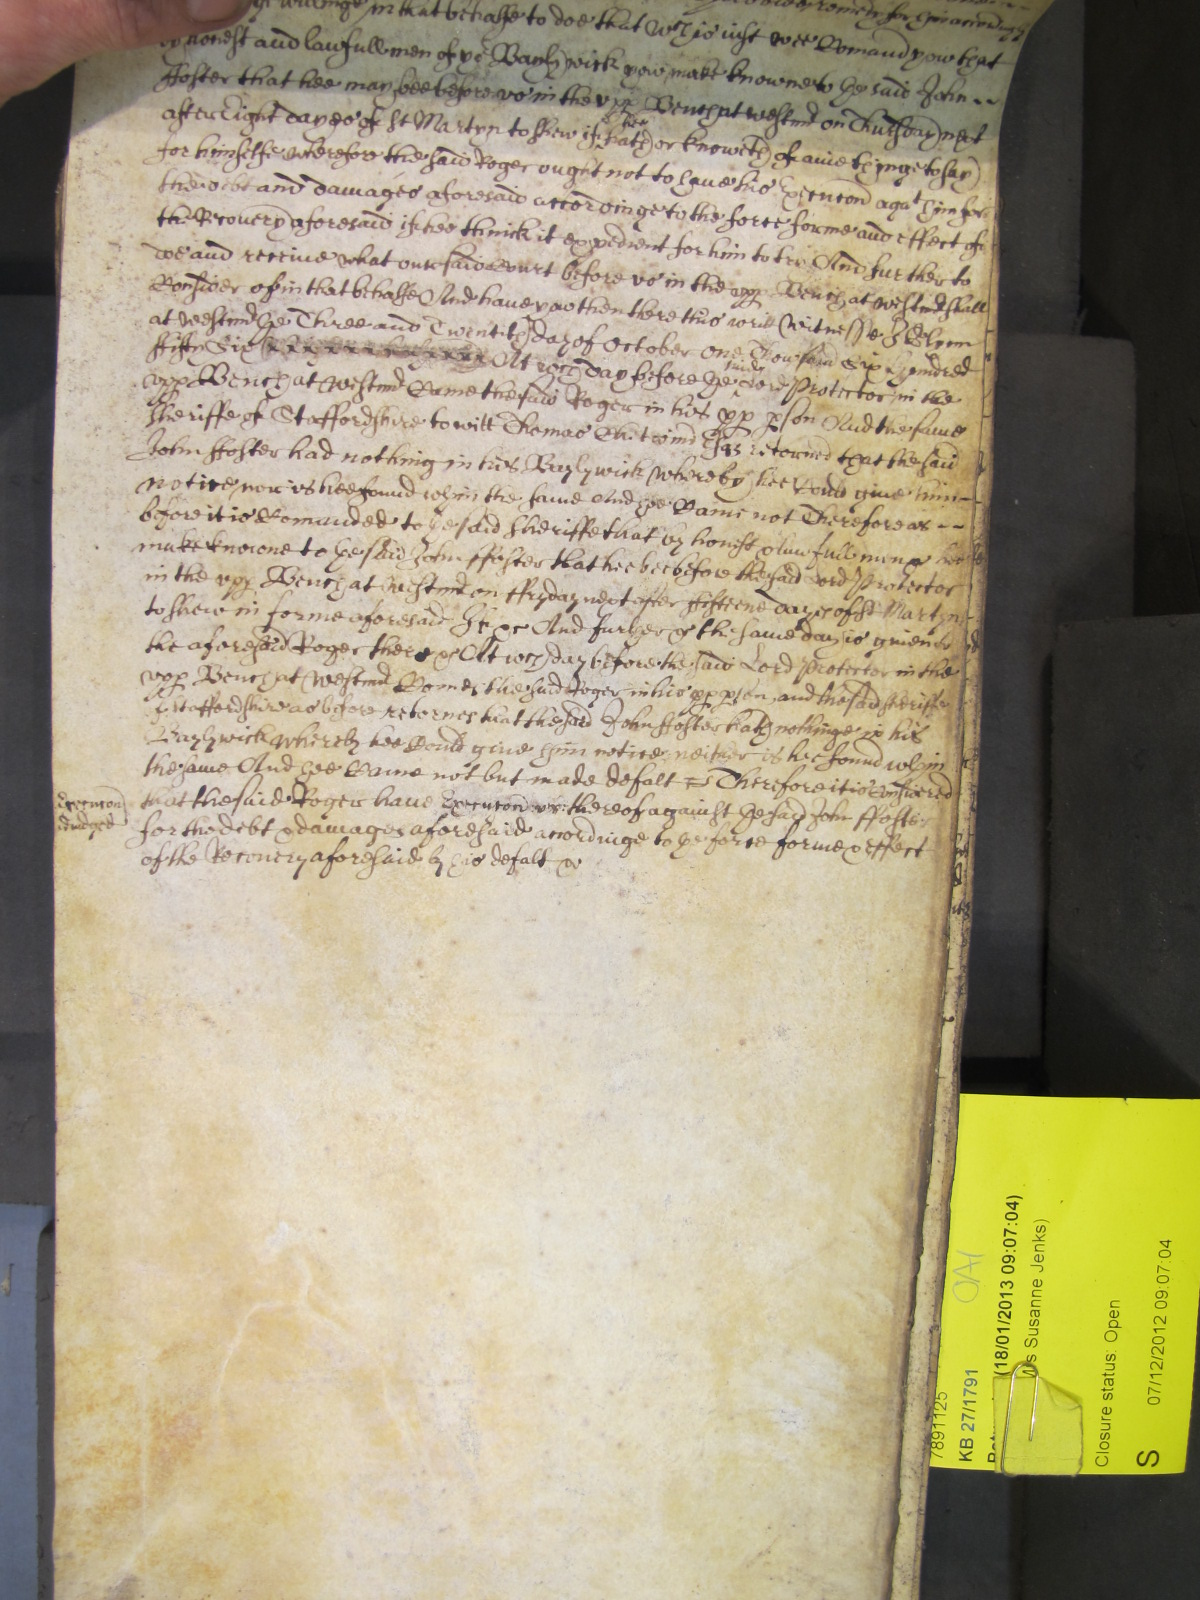 willinge in that behalfe to doe that wch is iust wee Comand yow that
by honest and lawfull men of yor Baylywick yow make knowne to the said John
ffoster that hee may bee before vs in the vpp Bench at Westmr on Thursday next
after Eight dayes of St Martyn to shew if hee hath or knoweth of aine thinge to say
for himselfe wherefore the said Roger ought not to have his Execucon agat him for
the debt and damages aforesaid accordinge to the force forme and effect of
the Recovery aforesaid if hee thinck it expedient for him to And further to
doe and receive what our said Court before vs in the vpp Bench at Westmr shall
Consider of in that behalfe And have yow then there this writt Witnesse
at Westmr the Three and Twentith day of October one Thowsand Six hundred
fiftie Six At wch day before the said Lord Protector in the
vpp Bench at Westmr Came the said Roger in his pp pson And the same
Sheriffe of Staffordshire to witt Thomas Chetwind has retorned that the said
John ffoster had nothing in his Baylywick whereby hee Could give him
notice nor is hee found wthin the same And hee Came not Therefore as
before it is Comanded to the said Sheriffe that by honest & lawfull men &c hee
make knowne to the said John ffoster that hee bee before the said Lord Protector
in the vpp Bench at Westmr on ffryday next after fifteene dayes of St Martyn
to shew in forme aforesaid if &c And further &c the same day is given to
the aforesaid Roger there &c At wch day before the said Lord Protector in the
vpp Bench at Westmr Comes the said Roger in his pp pson, and the said Sheriffe
of Staffordshire as before retornes that the said John ffoster hath nothinge in his
Baylywick whereby hee Could give him notice neither is hee found wthin
the same And hee Came not but made defalt Therefore it is Considered
that the said Roger have Execucon thereof against the said John ffoster
for the debt & damages aforesaid accordinge to the force forme & effect
of the Recovery aforesaid by his defalt &c
Execucon
adiudged
7891125
KB 27/1791
(18/01/2013 09:07:04)
s Susanne Jenks)
Closure status: Open
S 07/12/2012 09:07:04